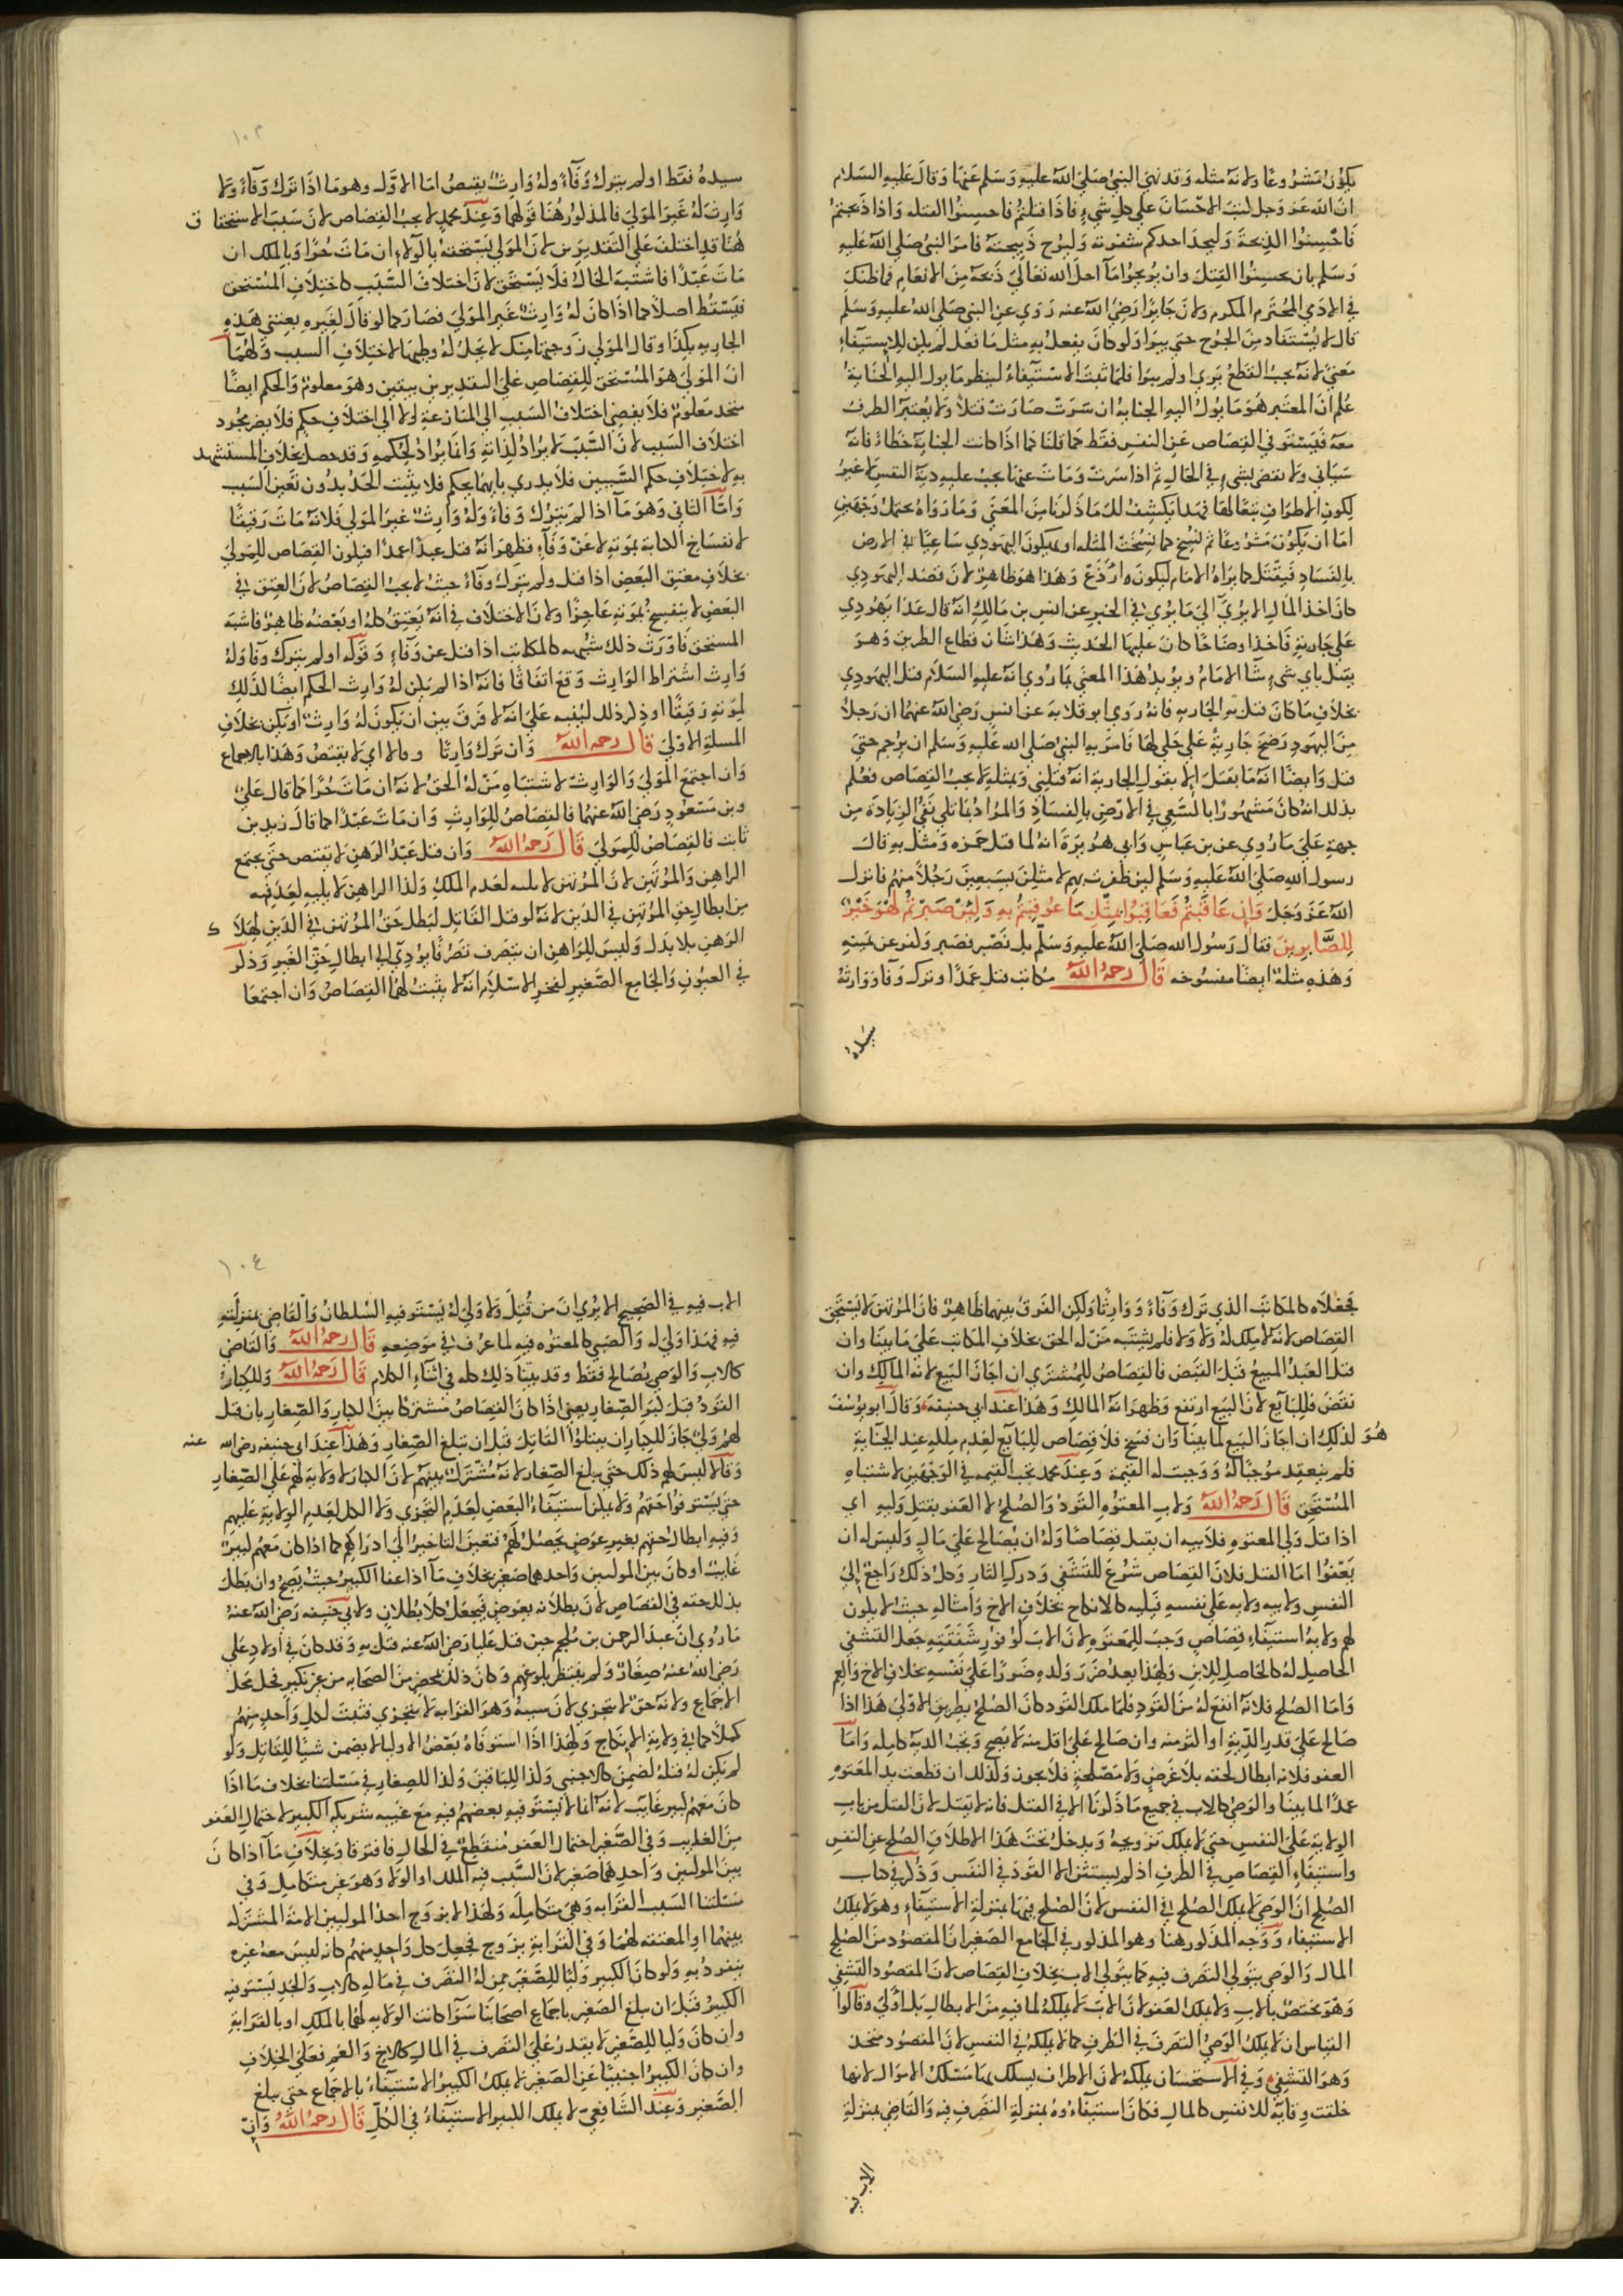 يكون مشروعا ولانه مثله وقد نهي النبي صلي الله عليه وسلم عنها وقال عليه السلام
ان الله عز وجل كتب الاحسان علي كل شيء فاذا قتلتم فاحسنوا القتله واذا ذبحتم
فاحسنوا الذبحة وليحد احدكم شفرته وليرح ذبيحته فامر النبي صلي الله عليه
وسلم بان يحسنوا القتل وان يريحوا ما احل الله تعالي ذبحه من الانعام فما ظنك
في الادمي المحترم المكرم ولان جابرا رضي الله عنه روي عن النبي صلي الله عليه وسلم
قال لا يستقاد من الجرح حتي يبرا ولو كان يفعل به مثل ما فعل لم يكن للاستيفاء
معني لانه يجب القطع بري اولم يبرا فلما ثبت الاستيفاء لينظر ما يول اليه الجناية
علم ان المعتبر هو ما يول اليه الجنايه ان سرت صارت قتلا ولا يعتبر الطرف
معه فيستوفي القصاص عن النفس فقط كما قلنا كما اذا كانت الجناية خطاء فانه
سياني ولا نقضي بشيء في الحال ثم اذا سرت ومات عنها يجب عليه دية النفس لا غير
لكون الاطراف تبعا لها فهذا يكشف لك ما ذكرنا من المعني وما رواه يحتمل وجهين
اما ان يكون مشروعا ثم نسخ كما نسخت المثله او يكون اليهودي ساعيا في الارض
بالفساد فيقتل كما يراه الامام ليكون اردع وهذا هو ظاهر لان قصد اليهودي
كان اخذ المال الا يري الي ما يروي في الخبر عن انس بن مالك انه قال عدا يهودي
علي جارية فاخذ اوضاحا كان عليها الحديث وهذا شان قطاع الطريق وهو
يقتل باي شيء شا الامام ويويد هذا المعني ما روي انه عليه السلام قتل اليهودي
بخلاف ما كان قتل به الجاريه فانه روي ابو قلابة عن انس رضي الله عنهما ان رجلا
من اليهود رضخ جارية علي حلي لها فامر به النبي صلي الله عليه وسلم ان يرجم حتي
قتل وايضا انه ما يقتل الا بقول الجارية انه قتلني وبمثله لا يجب القصاص فعلم
بذلك انه كان مشهورا بالسعي في الارض بالفساد والمراد بما تلي نفي الزيادة من
جهة علي ما روي عن بن عباس وابي هريرة انه لما قتل حمزه ومثل به قال
رسول الله صلي الله عليه وسلم لين ظفرت بهم لا مثلن بسبعين رجلا منهم فانزل
الله عز وجل وان عاقبتم فعاقبوا بمثل ما عوقبتم به ولين صبرتم لهو خير
للصابرين فقال رسول الله صلي الله عليه وسلم بل نصبر فصبر وكفر عن يمينه
وهذه مثلة ايضا منسوخه قال رحمه الله مكاتب قتل عمدا وترك وفا ووارثه
سيده
١٠٣
سيده فقط او لم يترك وفاء وله وارث يقتص اما الاول وهو ما اذا ترك وفاء ولا
وارث له غير المولي فالمذكور هنا قولهما وعند محمد لا يجب القصاص لان سبب الاستحقاق
هنا قد اختلف علي التقديرين لان المولي يستحقه بالولاء ان مات حرا وبالملك ان
مات عبدا فاشتبه الحال فلا يستحق لان اختلاف السبب كاختلاف المستحق
فيسقط اصلا كما اذا كان له وارث غير المولي فصار كما لو قال لغيره بعتني هذه
الجارية بكذا وقال المولي زوجتها منك لا يحل له وطيها لاختلاف السبب ولهما
ان المولي هو المستحق للقصاص علي التقديرين بيقين وهو معلوم والحكم ايضا
متحد معلوم فلا يفضي اختلاف السبب الي المنازعة ولا الي اختلاف حكم فلا يضر مجرد
اختلاف السبب لان السبب لا يراد لذاته وانما يراد لحكمه وقد حصل بخلاف المستشهد
به لاختلاف حكم السببين فلا يدري بايهما يحكم فلا يثبت الحل بدون تعين السبب
واما الثاني وهو ما اذا لم يترك وفاء وله وارث غير المولي فلانه مات رقيقا
لانفساخ الكتابة بموته لا عن وفاء فظهر انه قتل عبدا عمدا فيكون القصاص للمولي
بخلاف معتق البعض اذا قتل ولم يترك وفاء حيث لا يجب القصاص لان العتق في
البعض لا ينفسخ بموته عاجزا ولان الاختلاف في انه يعتق كله او بعضه ظاهر فاشبه
المستحق فاورث ذلك شبهه كالمكاتب اذا قتل عن وفاء وقوله او لم يترك وفا وله
وارث اشتراط الوارث وقع اتفاقا فانه اذا لم يكن له وارث الحكم ايضا كذلك
لموته رقيقا او ذكر ذلك لينبه علي انه لا فرق بين ان يكون له وارث او يكن بخلاف
المسلة الاولي قال رحمه الله وان ترك وارثا وفا لا اي لا يقتص وهذا بالاجماع
وان اجتمع المولي والوارث لاشتباه من له الحق لانه ان مات حرا كما قال علي
وبن مسعود رضي الله عنهما فالقصاص للوارث وان مات عبدا كما قال زيد بن
ثابت فالقصاص للمولي قال رحمه الله وان قتل عبد الرهن لا يقتص حتي يجتمع
الراهن والمرتهن لان المرتهن لا يليه لعدم الملك وكذا الراهن لا يليه لعدم فيه
من ابطال حق المرتهن في الدين لانه لو قتل القاتل لبطل حق المرتهن في الدين لهلاك
الرهن بلا بدل وليس للراهن ان يتصرف تصرفا يودي الي ابطال حق الغير وذكر
في العيون والجامع الصغير لفخر الاسلام انه لا يثبت لهما القصاص وان اجتمعا
فجعلاه كالمكاتب الذي ترك وفاء ووارثا ولكن الفرق بينهما ظاهر فان المرتهن لا يستحق
القصاص لانه لا ملك له ولا ولا فلم يشتبه من له الحق بخلاف المكاتب علي ما بينا وان
قتل العبد المبيع قبل القبض فالقصاص للمشتري ان اجاز البيع لانه المالك وان
نقض فللبايع لان البيع ارتفع وظهر انه المالك وهذا عند ابي حنيفة وقال ابو يوسف
هو كذلك ان اجاز البيع لما بينا وان فسخ فلا قصاص للبايع لعدم ملكه عند الجناية
فلم ينعقد موجبا له ووجبت له القيمة وعند محمد تجب القيمه في الوجهين لاشتباه
المستحق قال رحمه الله ولاب المعتوه القود والصلح لا العفو بقتل وليه اي
اذا قتل ولي المعتوه فلابيه ان يقتل قصاصا وله ان يصالح علي مال وليس له ان
يعفوا اما القتل فلان القصاص شرع للتشفي ودرك الثار وكل ذلك راجع الي
النفس ولابيه ولايه علي نفسه فيليه كالانكاح بخلاف الاخ وامثاله حيث لا يكون
لهم ولاية استيفاء قصاص وجب للمعتوه لان الاب لوفور شفقته جعل التشفي
الحاصل له كالحاصل للابن ولهذا يعد ضرر ولده ضررا علي نفسه بخلاف الاخ والعم
واما الصلح فلانه انفع له من القود فلما ملك القود كان الصلح بطريق الاولي هذا اذا
صالح علي قدر الدية او اكثر منه وان صالح علي اقل منه لا يصح وتجب الدية كامله واما
العفو فلانه ابطال لحقه بلا عوض ولا مصلحة فلا يجوز وكذلك ان قطعت يد المعتوه
عمدا لما بينا والوصي كالاب في جميع ما ذكرنا الا في القتل فانه لا يقتل لان القتل من باب
الولاية علي النفس حتي لا يملك تزويجه ويدخل تحت هذا الاطلاق الصلح عن النفس
واستيفاء القصاص في الطرف اذ لم يستثن الا القود في النفس وذكر في كتاب
الصلح ان الوصي لا يملك الصلح في النفس لان الصلح فيها بمنزلة الاستيفاء وهو لا يملك
الاستيفاء ووجه المذكور هنا وهو المذكور في الجامع الصغير ان المقصود من الصلح
المال والوصي يتولي التصرف فيه كما يتولي الاب بخلاف القصاص لان المقصود التشفي
وهو مختص بالاب ولا يملك العفو لان الاب لا يملكه لما فيه من الابطال بل اولي وقالوا
القياس ان لا يملك الوصي التصرف في الطرف كما لا يملكه في النفس لان المقصود متحد
وهو التشفي وفي الاستحسان يملكه لان الاطراف يسلك بها مسلك الاموال لانها
خلقت وقاية للانفس كالمال فكان استيفاءوه بمنزلة التصرف فيه والقاضي بمنزلة
الاب فيه
١٠٤
الاب فيه في الصحيح الا يري ان من قتل ولا ولي له يستوفيه السلطان والقاضي بمنزلته
فيه فهذا اولي له والصبي كالمعتوه فيه لما عرف في موضعه قال رحمه الله والقاضي
كالاب والوصي يصالح فقط وقد بينا ذلك كله في اثناء الكلام قال رحمه الله وللكبار
القود قبل كبر الصغار يعني اذا كان القصاص مشتركا بين الكبار والصغار بان قتل
لهم ولي جاز للكبار ان يقتلوا القاتل قبل ان تبلغ الصغار وهذا عند ابي حنيفه رضي الله عنه
وقالا ليس لهم ذلك حتي يبلغ الصغار لانه مشترك بينهم لان الكبار لا ولاية لهم علي الصغار
حتي يستوفوا حقهم ولا يمكن استيفاء البعض لعدم التجزي ولا الكل لعدم الولاية عليهم
وفيه ابطال حقهم بغير عوض يحصل لهم فتعين التاخير الي ادراكهم كما اذا كان معهم كبير
غايب او كان بين الموليين واحدهما صغير بخلاف ما اذا عفا الكبير حيث يصح وان بطل
بذلك حقه في القصاص لان بطلانه بعوض فيجعل كلا بطلان ولابي حنيفه رضي الله عنه
ما روي ان عبد الرحمن بن ملجم حين قتل عليا رضي الله عنه قتل به وقد كان في اولاد علي
رضي الله عنه صغار ولم ينتظر بلوغهم وكان ذلك بمحضر من الصحابه من غير نكير فحل محل
الاجماع ولانه حق لا يتجزي لان سببه وهو القرابه لا يتجزي فثبت لكل واحد منهم
كملا كما في ولاية الانكاح ولهذا اذا استوفاه بعض الاوليا لا يضمن شيا للقاتل ولو
لم يكن له قتله لضمن كالاجنبي وكذا للباقين وكذا للصغار في مسئلتنا بخلاف ما اذا
كان معهم كبير غايب لانه انما لا يستوفيه بعضهم فيه مع غيبه شريكه الكبير لاحتمال العفو
من الغايب وفي الصغير احتمال العفو منقطع في الحال فافترقا وبخلاف ما اذا كان
بين الموليين واحدهما صغير لان السبب فيه الملك او الولا وهو غير متكامل وفي
مسئلتنا السبب القرابه وهي متكامله ولهذا لا يزوج احد الموليين الامة المشتركه
بينهما او المعتقه لهما وفي القرابة يزوج فجعل كل واحد منهم كانه ليس معه غيره
ينفرد به ولو كان الكبير وليا للصغير ممن له التصرف في ماله كالاب والجد يستوفيه
الكبير قبل ان يبلغ الصغير باجماع اصحابنا سوا كانت الولايه لهما بالملك او بالقرابة
وان كان وليا للصغير لا يقدر علي التصرف في المال كالاخ والعم فعلي الخلاف
وان كان الكبير اجنبيا عن الصغير لا يملك الكبير الاستيفاء بالاجماع حتي يبلغ
الصغير وعند الشافعي لا يملك الكبير الاستيفاء في الكل قال رحمه الله وان